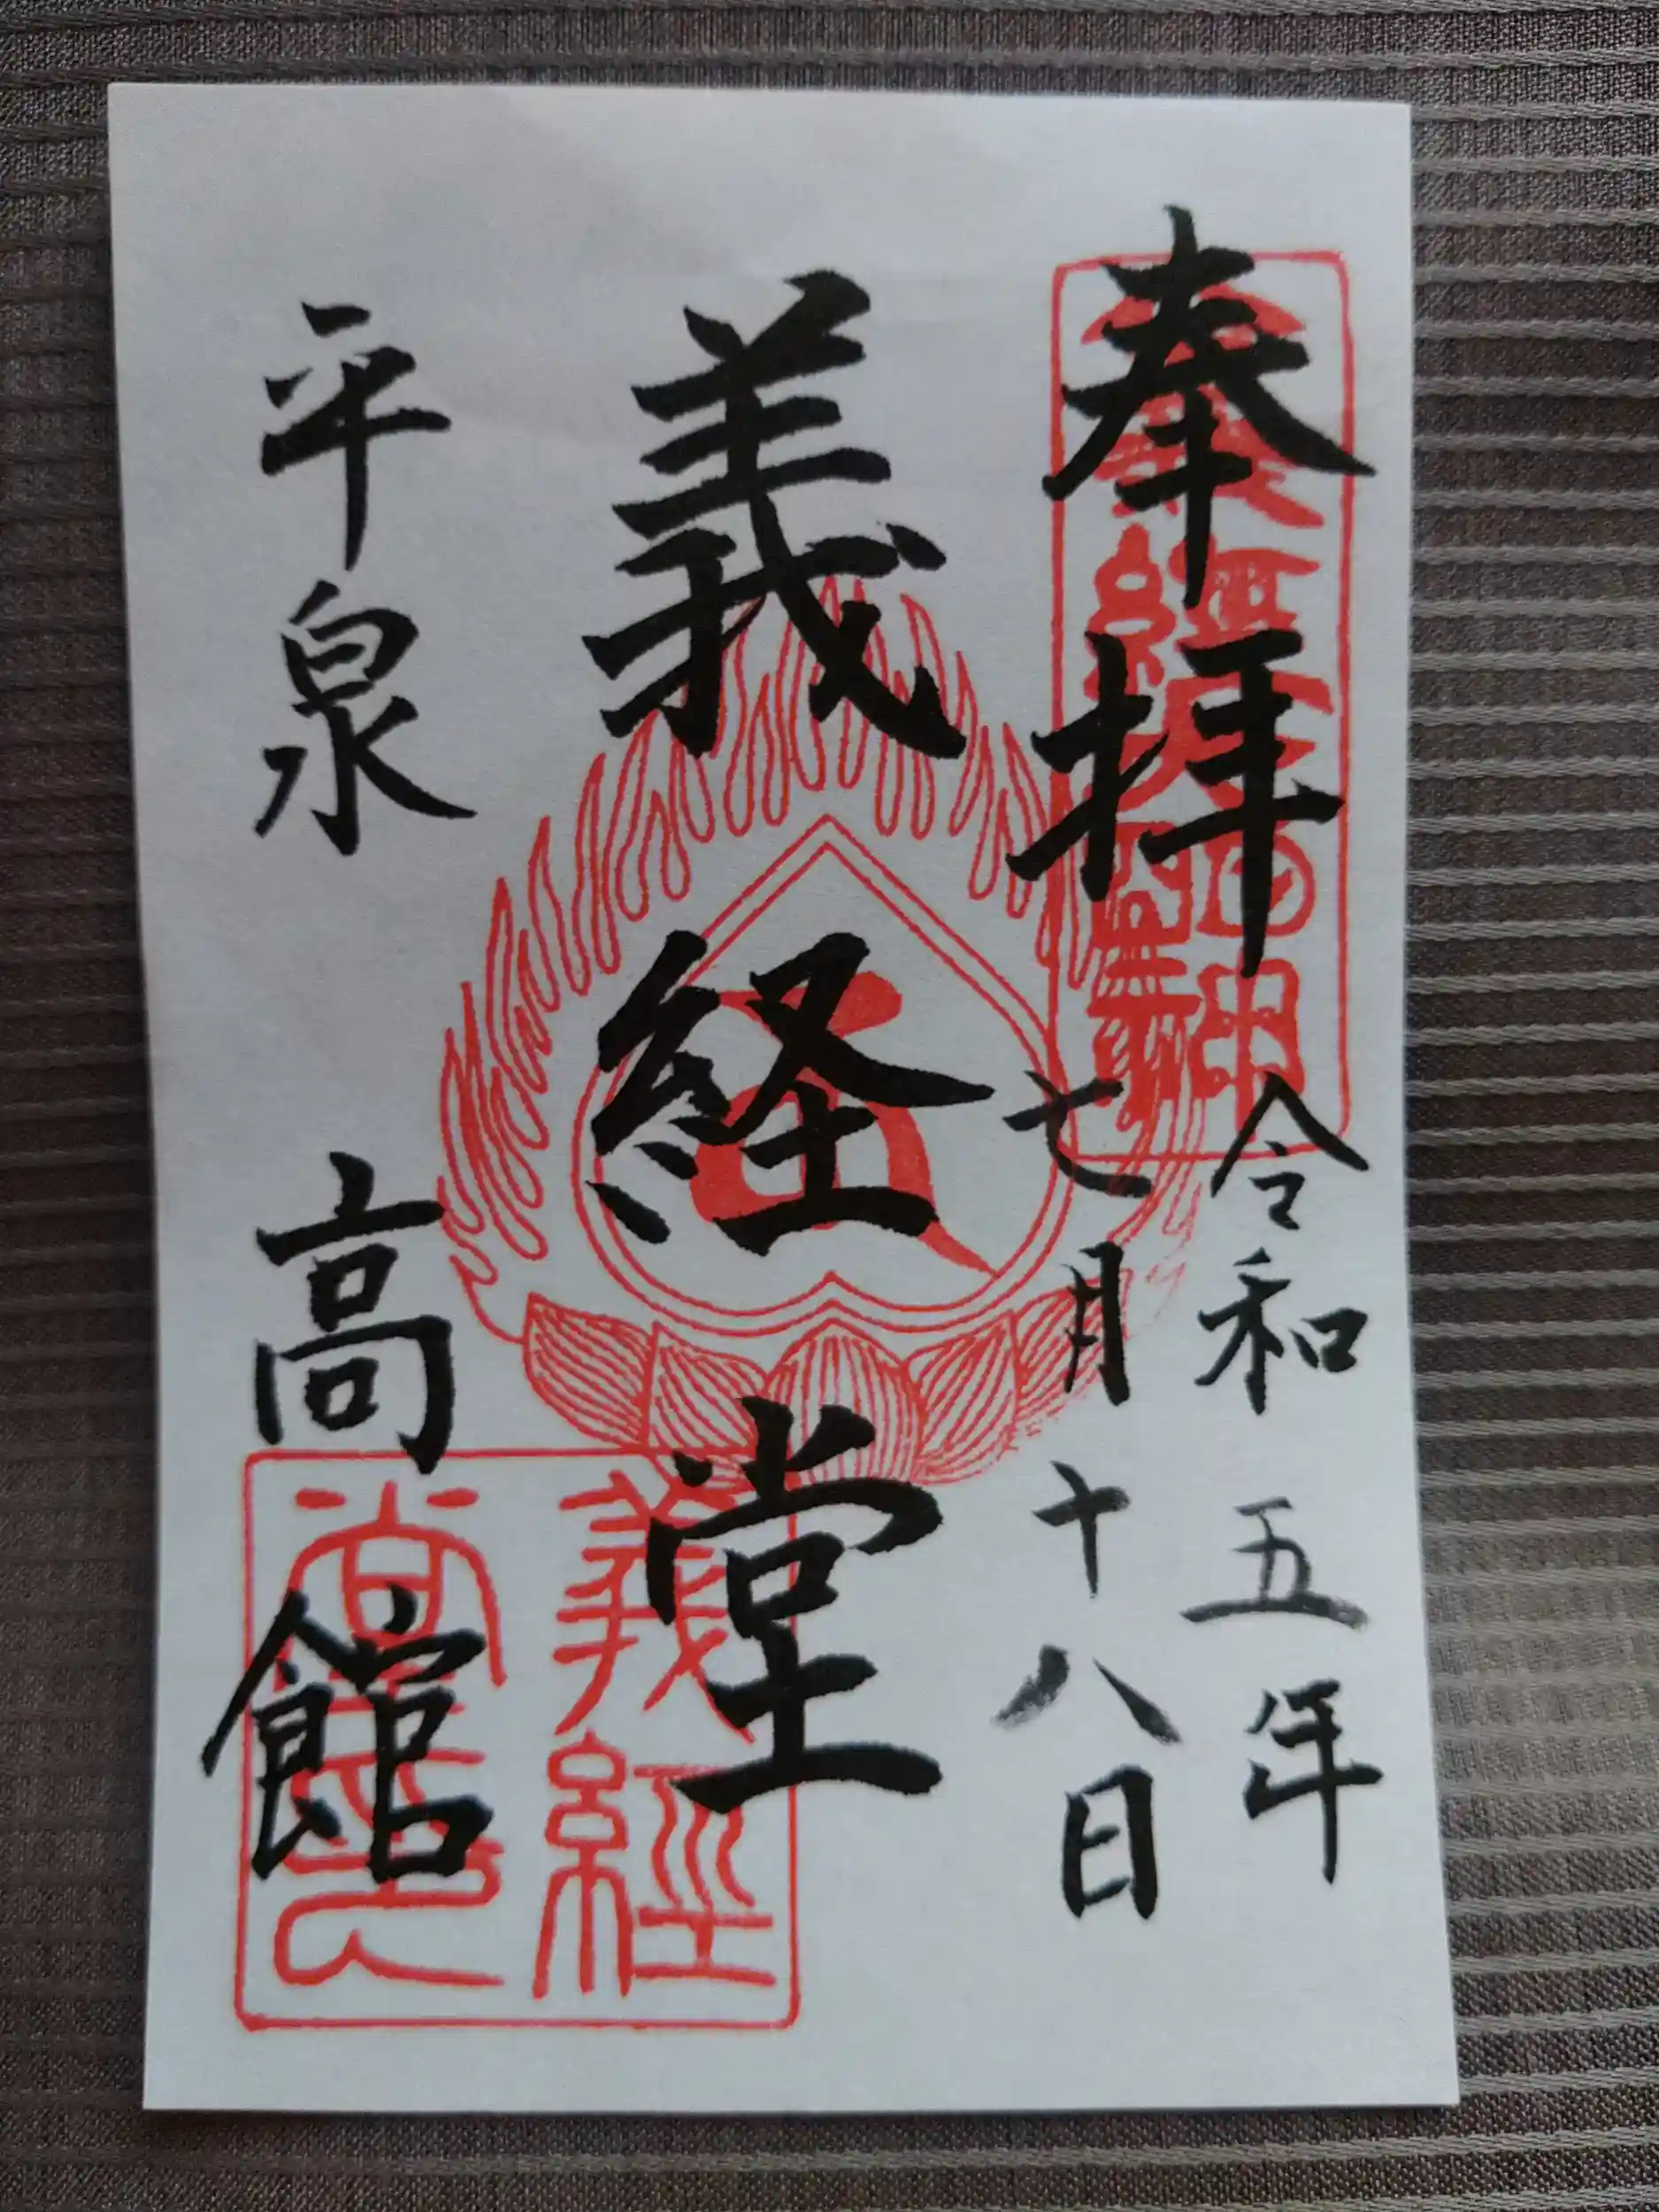 奉拝
令和五年
七月十八日
義経堂
平泉 高館
義經
堂印